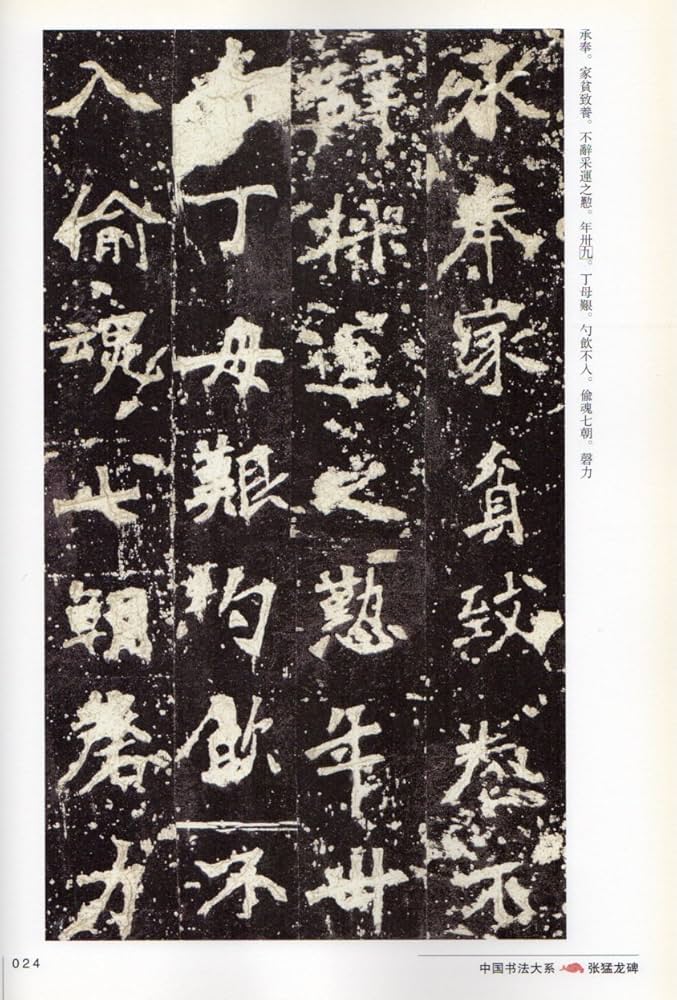 承奉。家貧致養。不辭采運之懃。年卅九。丁母艱。勺飲不人。偷魂七朝。磬力
承奉家貧致養不
辭採運之懃年卅
丁母艱杓飲不
入偷魂七朝磬力
024
中国书法大系 张猛龙碑